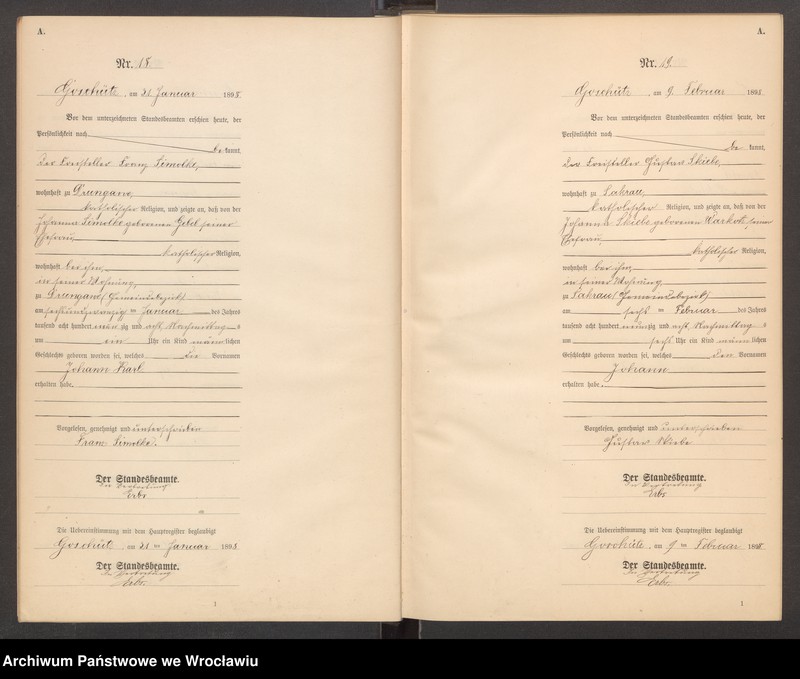 A.
Nr. 18.
Goschütz, am 31. Januar 1898
Vor dem unterzeichneten Standesbeamten erschien heute, der
Persönlichkeit nach
be kannt,
der Freisteller Franz
wohnhaft zu
katholischer Religion, und zeigte an, daß von der
Johanna geborenen seiner
Ehefrau,
katholischer Religion,
wohnhaft bei ihm,
in seiner Wohnung,
zu (Gemeindebezirk)
am sechsundzwanzigten Januar des Jahres
tausend acht hundert neun zig und acht, Nachmittag s
um ein Uhr ein Kind männlichen
Geschlechts geboren worden sei, welches die Vornamen
Johann Karl
erhalten habe.
Vorgelesen, genehmigt und unterschrieben
Franz
Der Standesbeamte.
In Vertretung
Erbs
Die Uebereinstimmung mit dem Hauptregister beglaubigt
Goschütz, am 31. ten Januar 1898
Der Standesbeamte.
In Vertretung
Erbs.
1
A.
Nr. 19.
Goschütz, am 9. Februar 1898
Vor dem unterzeichneten Standesbeamten erschien heute, der
Persönlichkeit nach
be kannt,
der Freisteller Gustav Skiebe,
wohnhaft zu Sakrau,
katholischer Religion, und zeigte an, daß von der
Johanna Skiebe geborenen seiner
Ehefrau,
katholischer Religion,
wohnhaft bei ihm,
in seiner Wohnung,
zu Sakrau (Gemeindebezirk)
am sechs ten Februar des Jahres
tausend acht hundert neunzig und acht, Nachmittag s
um sechs Uhr ein Kind männlichen
Geschlechts geboren worden sei, welches den Vornamen
Johann
erhalten habe.
Vorgelesen, genehmigt und unterschrieben
Gustav Skiebe
Der Standesbeamte.
In Vertretung
Erbs
Die Uebereinstimmung mit dem Hauptregister beglaubigt
Goschütz, am 9 ten Februar 1898
Der Standesbeamte.
In Vertretung
Erbs.
1
Archiwum Państwowe we Wrocławiu